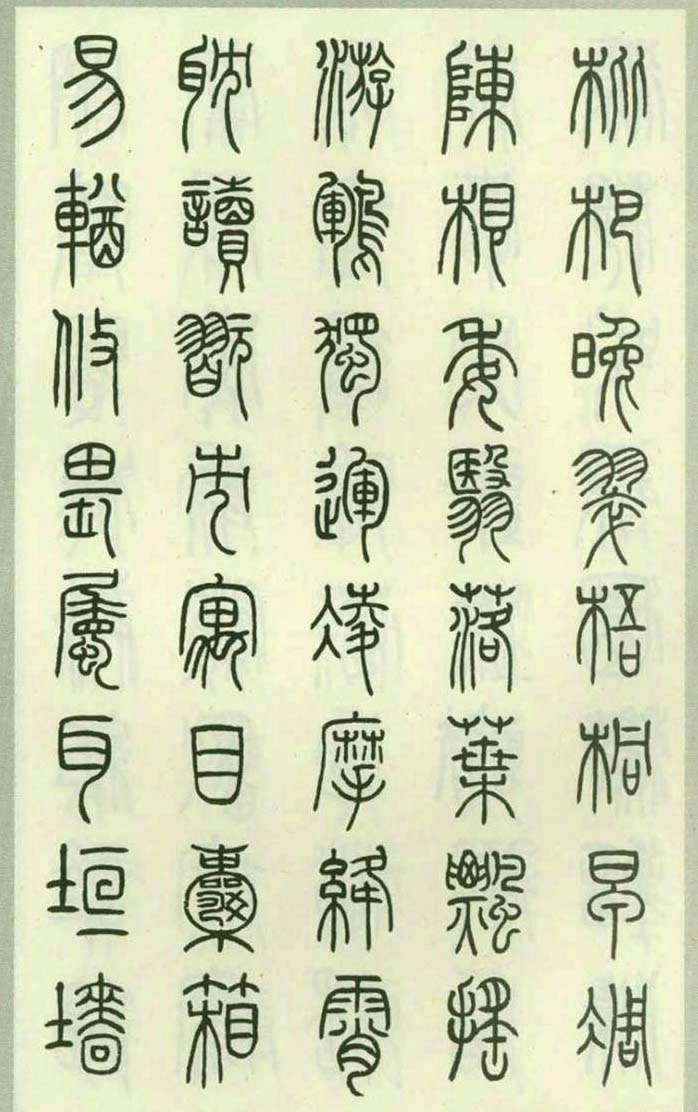 枇杷晚翠梧桐早凋
陳根委翳落葉飄搖
游鶤獨運凌摩絳霄
耽讀翫市寓目囊箱
易輶攸畏屬耳垣牆